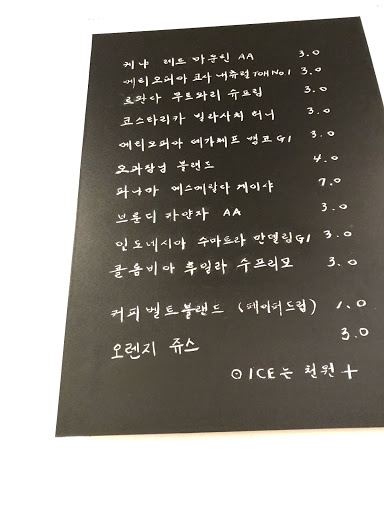 케냐 레드 마운틴 AA 3.0
에티오피아 코사 내츄럴 TOH No1 3.0
르완다 무트와리 슈프림 3.0
코스타리카 빌라사치 허니 3.0
에티오피아 예가체프 뱅코 G1 3.0
오과장님 블랜드 4.0
파나마 에스메랄다 게이샤 7.0
브룬디 카얀자 AA 3.0
인도네시아 수마트라 만델링 G1 3.0
콜롬비아 후일라 수프리모 3.0
커피벨트 블랜드 (페이퍼드립) 1.0
오렌지 쥬스 3.0
⊙ ICE는 천원 +